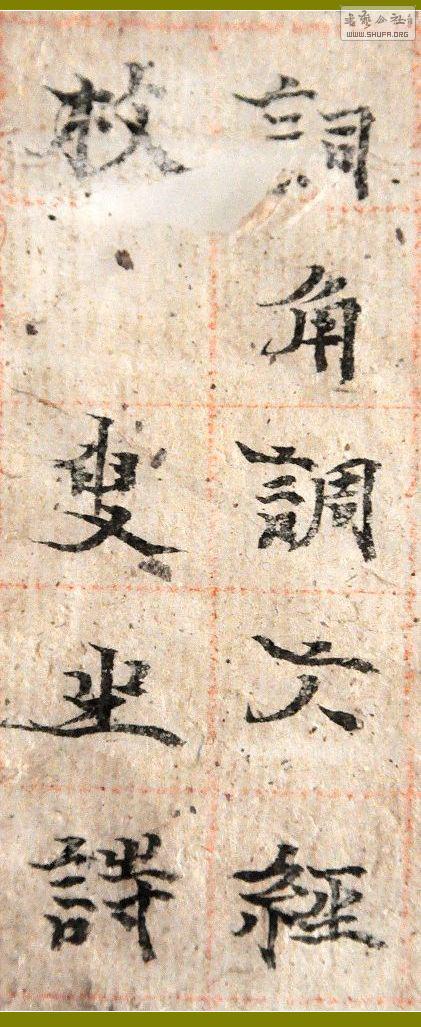 書藝公社
WWW.SHUFA.ORG
詞角調六經
枚叟詩